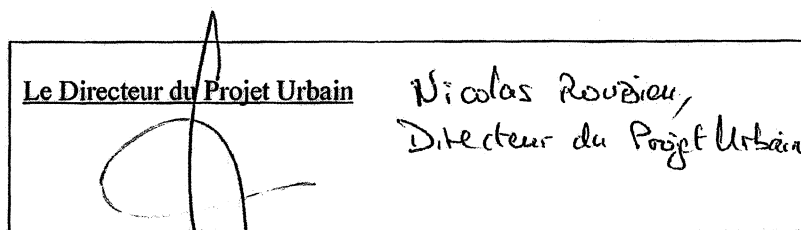 Le Directeur du Projet Urbain
Nicolas Roubieu,
Directeur du Projet Urbain